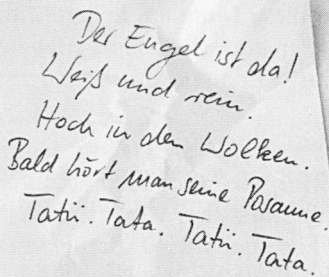 Der Engel ist da!
Weiß und rein.
Hoch in den Wolken.
Bald hört man seine Posaune.
Tatü. Tata. Tatü. Tata.